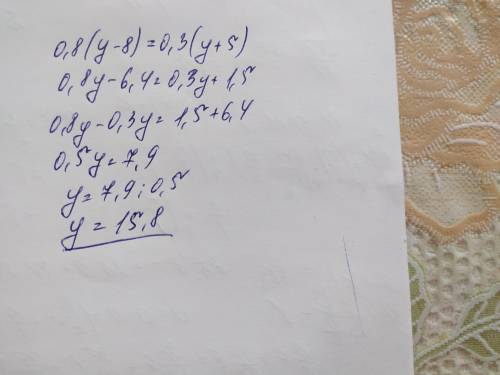 0,8(y-8)=0,3(y+5)
0,8y-6,4=0,3y+1,5
0,8y-0,3y=1,5+6,4
0,5y=7,9
y=7,9:0,5
y=15,8